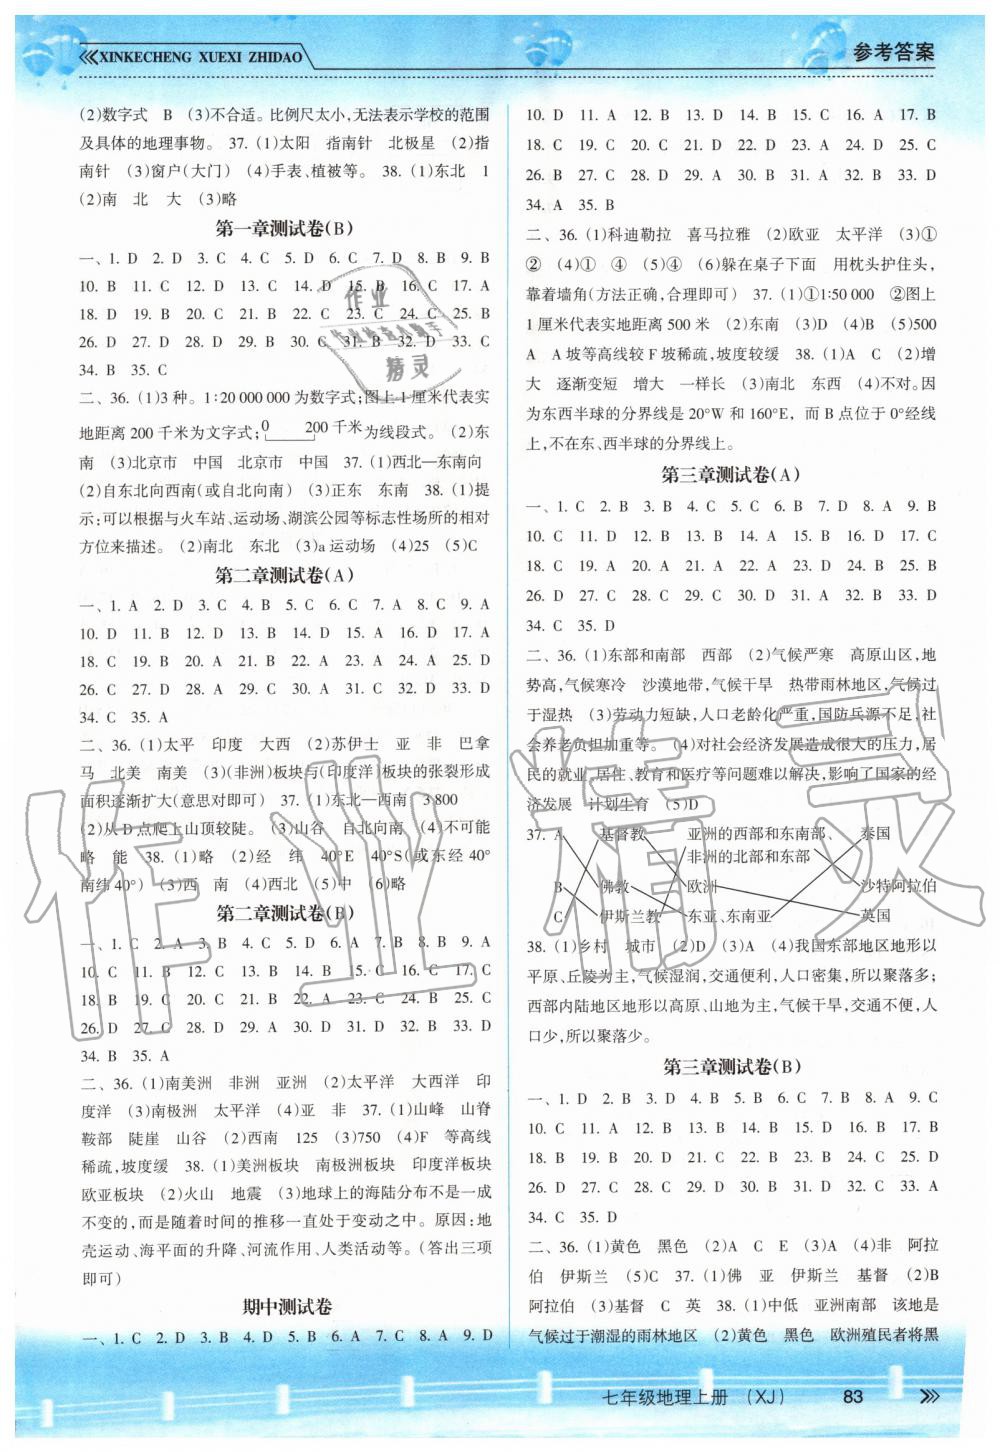 XINKECHENG XUEXI ZHIDAO
参考答案
(2)数字式 B (3)不合适。比例尺太小,无法表示学校的范围
及具体的地理事物。 37. (1)太阳 指南针 北极星 (2)指
南针 (3)窗户(大门) (4)手表、植被等。 38. (1)东北 1
(2)南 北 大 (3)略
第一章测试卷(B)
一、1. D 2. D 3. C 4. C 5. D 6. C 7. D 8. B 9. B
10. B 11. C 12. D 13. D 14. D 15. B 16. C 17. A
18. D 19. B 20. C 21. D 22. C 23. C 24. C 25. B
26. D 27. D 28. D 29. C 30. C 31. B 32. D 33. C
34. B 35. C
二、36. (1)3种。1∶20 000 000为数字式;图上1厘米代表实
地距离200千米为文字式; 0 200千米 为线段式。 (2)东
南 (3)北京市 中国 北京市 中国 37. (1)西北—东南向
(2)自东北向西南(或自北向南) (3)正东 东南 38. (1)提
示:可以根据与火车站、运动场、湖滨公园等标志性场所的相对
方位来描述。 (2)南北 东北 (3)a运动场 (4)25 (5)C
第二章测试卷(A)
一、1. A 2. D 3. C 4. B 5. C 6. C 7. A 8. C 9. A
10. D 11. B 12. D 13. B 14. D 15. A 16. D 17. A
18. C 19. B 20. A 21. D 22. B 23. A 24. A 25. D
26. C 27. D 28. A 29. C 30. C 31. A 32. D 33. D
34. C 35. A
二、36. (1)太平 印度 大西 (2)苏伊士 亚 非 巴拿
马 北美 南美 (3)(非洲)板块与(印度洋)板块的张裂形成
面积逐渐扩大(意思对即可) 37. (1)东北—西南 3 800
(2)从D点爬上山顶较陡。 (3)山谷 自北向南 (4)不可能
略 能 38. (1)略 (2)经 纬 40°E 40°S(或东经40°
南纬40°) (3)西 南 (4)西北 (5)中 (6)略
第二章测试卷(B)
一、1. C 2. A 3. B 4. C 5. C 6. A 7. B 8. B 9. A
10. C 11. B 12. C 13. B 14. B 15. C 16. C 17. C
18. B 19. C 20. C 21. D 22. A 23. C 24. B 25. C
26. D 27. C 28. D 29. A 30. D 31. D 32. B 33. D
34. B 35. A
二、36. (1)南美洲 非洲 亚洲 (2)太平洋 大西洋 印
度洋 (3)南极洲 太平洋 (4)亚 非 37. (1)山峰 山脊
鞍部 陡崖 山谷 (2)西南 125 (3)750 (4)F 等高线
稀疏,坡度缓 38. (1)美洲板块 南极洲板块 印度洋板块
欧亚板块 (2)火山 地震 (3)地球上的海陆分布不是一成
不变的,而是随着时间的推移一直处于变动之中。原因:地
壳运动、海平面的升降、河流作用、人类活动等。(答出三项
即可)
期中测试卷
一、1. C 2. D 3. B 4. D 5. B 6. A 7. C 8. A 9. D
10. D 11. A 12. B 13. D 14. B 15. C 16. A 17. B
18. C 19. C 20. C 21. C 22. D 23. D 24. D 25. C
26. B 27. C 28. D 29. A 30. A 31. B 32. B 33. D
34. A 35. B
二、36. (1)科迪勒拉 喜马拉雅 (2)欧亚 太平洋 (3)①
② (4)① ④ (5)④ (6)躲在桌子下面 用枕头护住头,
靠着墙角(方法正确,合理即可) 37. (1)①1∶50 000 ②图上
1厘米代表实地距离500米 (2)东南 (3)D (4)B (5)500
A A坡等高线较F坡稀疏,坡度较缓 38. (1)A C (2)增
大 逐渐变短 增大 一样长 (3)南北 东西 (4)不对。因
为东西半球的分界线是20°W和160°E,而B点位于0°经线
上,不在东、西半球的分界线上。
第三章测试卷(A)
一、1. C 2. B 3. B 4. C 5. C 6. B 7. D 8. A 9. B
10. C 11. D 12. B 13. C 14. B 15. D 16. A 17. C
18. C 19. C 20. A 21. A 22. C 23. B 24. B 25. B
26. D 27. D 28. A 29. C 30. D 31. C 32. B 33. D
34. C 35. D
二、36. (1)东部和南部 西部 (2)气候严寒 高原山区,地
势高,气候寒冷 沙漠地带,气候干旱 热带雨林地区,气候过
于湿热 (3)劳动力短缺,人口老龄化严重,国防兵源不足,社
会养老负担加重等。 (4)对社会经济发展造成很大的压力,居
民的就业、居住、教育和医疗等问题难以解决,影响了国家的经
济发展 计划生育 (5)D
37. A 基督教 亚洲的西部和东南部、 泰国
非洲的北部和东部
B 佛教 欧洲 沙特阿拉伯
C 伊斯兰教 东亚、东南亚 英国
38. (1)乡村 城市 (2)D (3)A (4)我国东部地区地形以
平原、丘陵为主,气候湿润,交通便利,人口密集,所以聚落多;
西部内陆地区地形以高原、山地为主,气候干旱,交通不便,人
口少,所以聚落少。
第三章测试卷(B)
一、1. D 2. B 3. D 4. D 5. C 6. B 7. C 8. A 9. C
10. C 11. A 12. D 13. D 14. B 15. D 16. B 17. B
18. B 19. B 20. D 21. B 22. B 23. D 24. C 25. D
26. D 27. D 28. C 29. A 30. B 31. D 32. C 33. A
34. C 35. D
二、36. (1)黄色 黑色 (2)A C E (3)A (4)非 阿拉
伯 伊斯兰 (5)C 37. (1)佛 亚 伊斯兰 基督 (2)B
阿拉伯 (3)基督 C 英 38. (1)中低 亚洲南部 该地是
气候过于潮湿的雨林地区 (2)黄色 黑色 欧洲殖民者将黑
七年级地理上册 (XJ) 83
作业精灵
作业
精灵